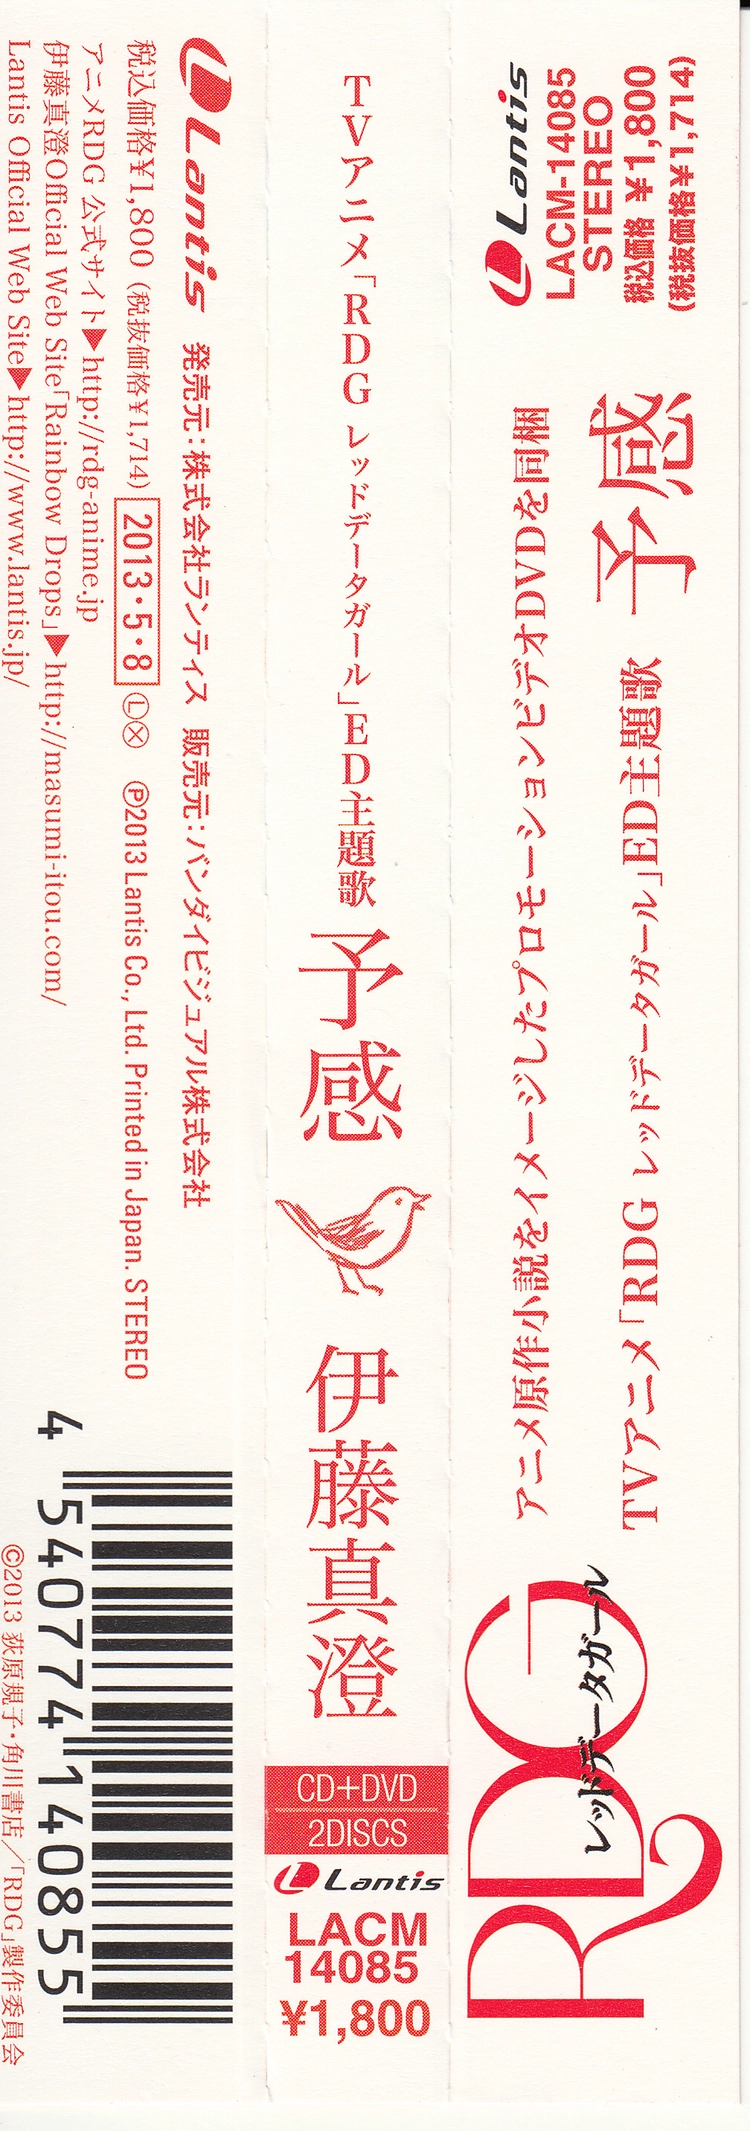 RDG
レッドデータガール
TVアニメ「RDG レッドデータガール」ED主題歌 予感
アニメ原作小説をイメージしたプロモーションビデオDVDを同梱
Lantis
LACM-14085
STEREO
税込価格 ¥1,800
(税抜価格¥1,714)
TVアニメ「RDG レッドデータガール」ED主題歌
予感
伊藤真澄
CD+DVD
2DISCS
Lantis
LACM
14085
¥1,800
Lantis 発売元:株式会社ランティス 販売元:バンダイビジュアル株式会社
税込価格¥1,800 (税抜価格¥1,714) 2013・5・8 Ⓛⓧ ℗2013 Lantis Co., Ltd. Printed in Japan. STEREO
アニメRDG 公式サイト▶http://rdg-anime.jp
伊藤真澄Official Web Site「Rainbow Drops」▶http://masumi-itou.com/
Lantis Official Web Site▶http://www.lantis.jp/
4 540774 140855
©2013 荻原規子・角川書店/「RDG」製作委員会